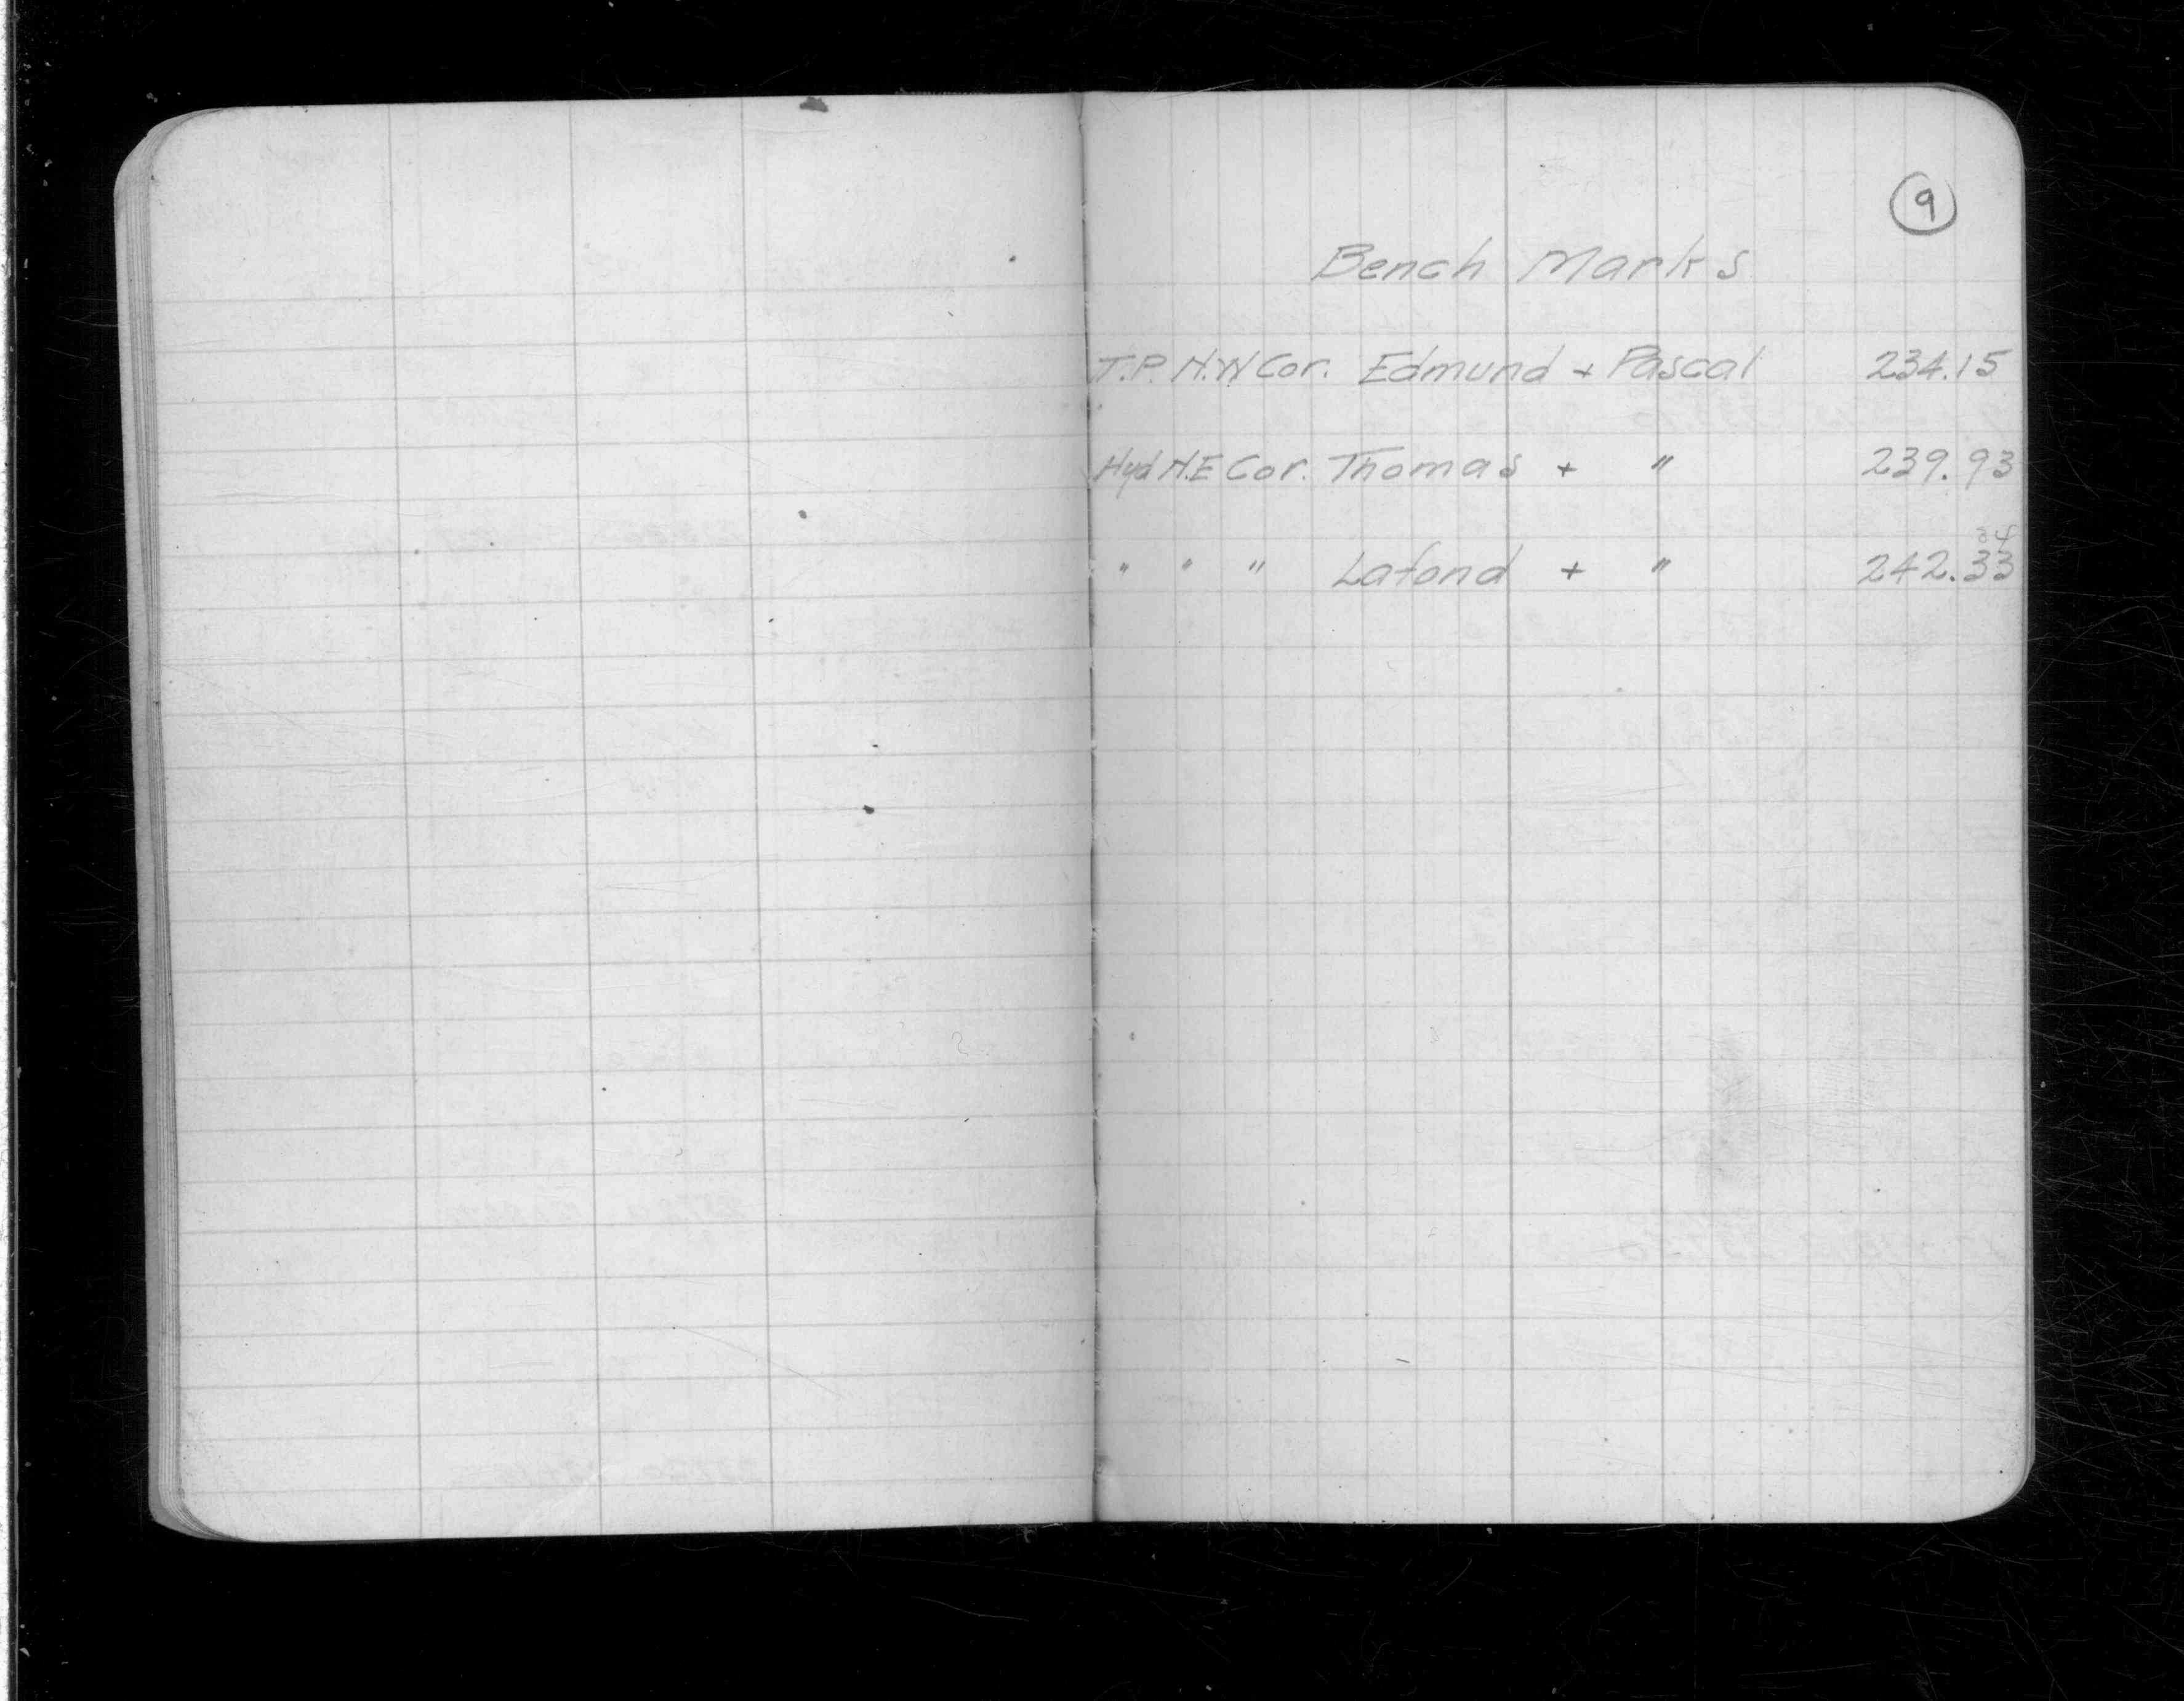 9
Bench Marks
T.P. N.W Cor. Edmund + Pascal 234.15
Hyd N.E Cor. Thomas + " 239.93
34
" " " Lafond + " 242.33